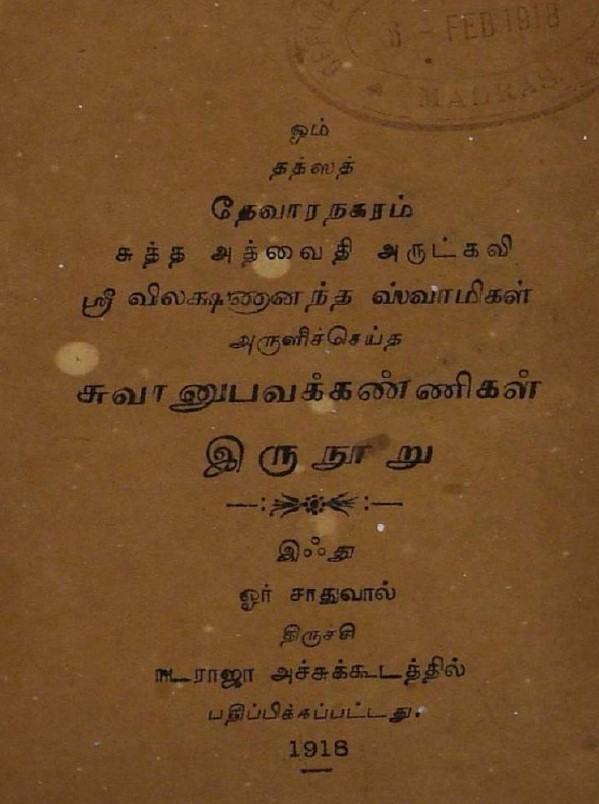 6 - FEB 1918
MADRAS
ஓம்
தத்ஸத்
தேவாரநகரம்
சுத்த அத்வைதி அருட்கவி
ஸ்ரீ விலக்ஷணானந்த ஸ்வாமிகள்
அருளிச்செய்த
சுவானுபவக்கண்ணிகள்
இருநூறு
இஃது
ஓர் சாதுவால்
திருச்சி
நடராஜா அச்சுக்கூடத்தில்
பதிப்பிக்கப்பட்டது.
1918